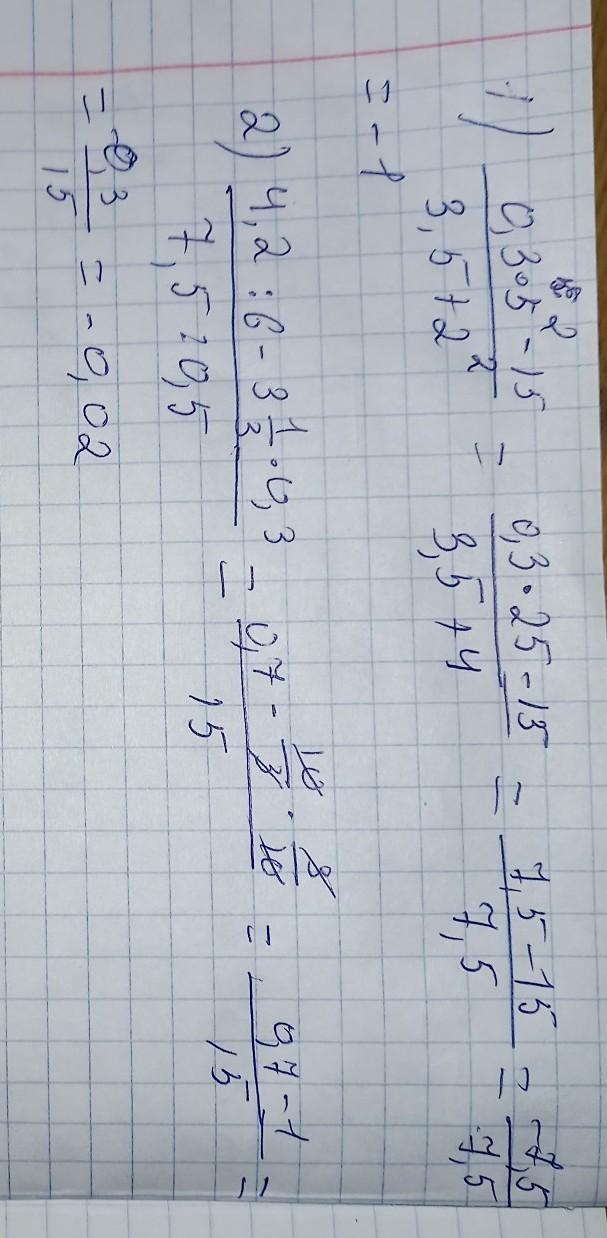 1) (0,3·5² - 15)/(3,5 + 2²) = (0,3·25 - 15)/(3,5 + 4) = (7,5 - 15)/(7,5) = (-7,5)/(7,5)
= -1
2) (4,2 : 6 - 3 1/3 · 0,3)/(7,5 : 0,5) = (0,7 - 10/3 · 3/10)/(15) = (0,7 - 1)/(15) =
= (-0,3)/(15) = -0,02